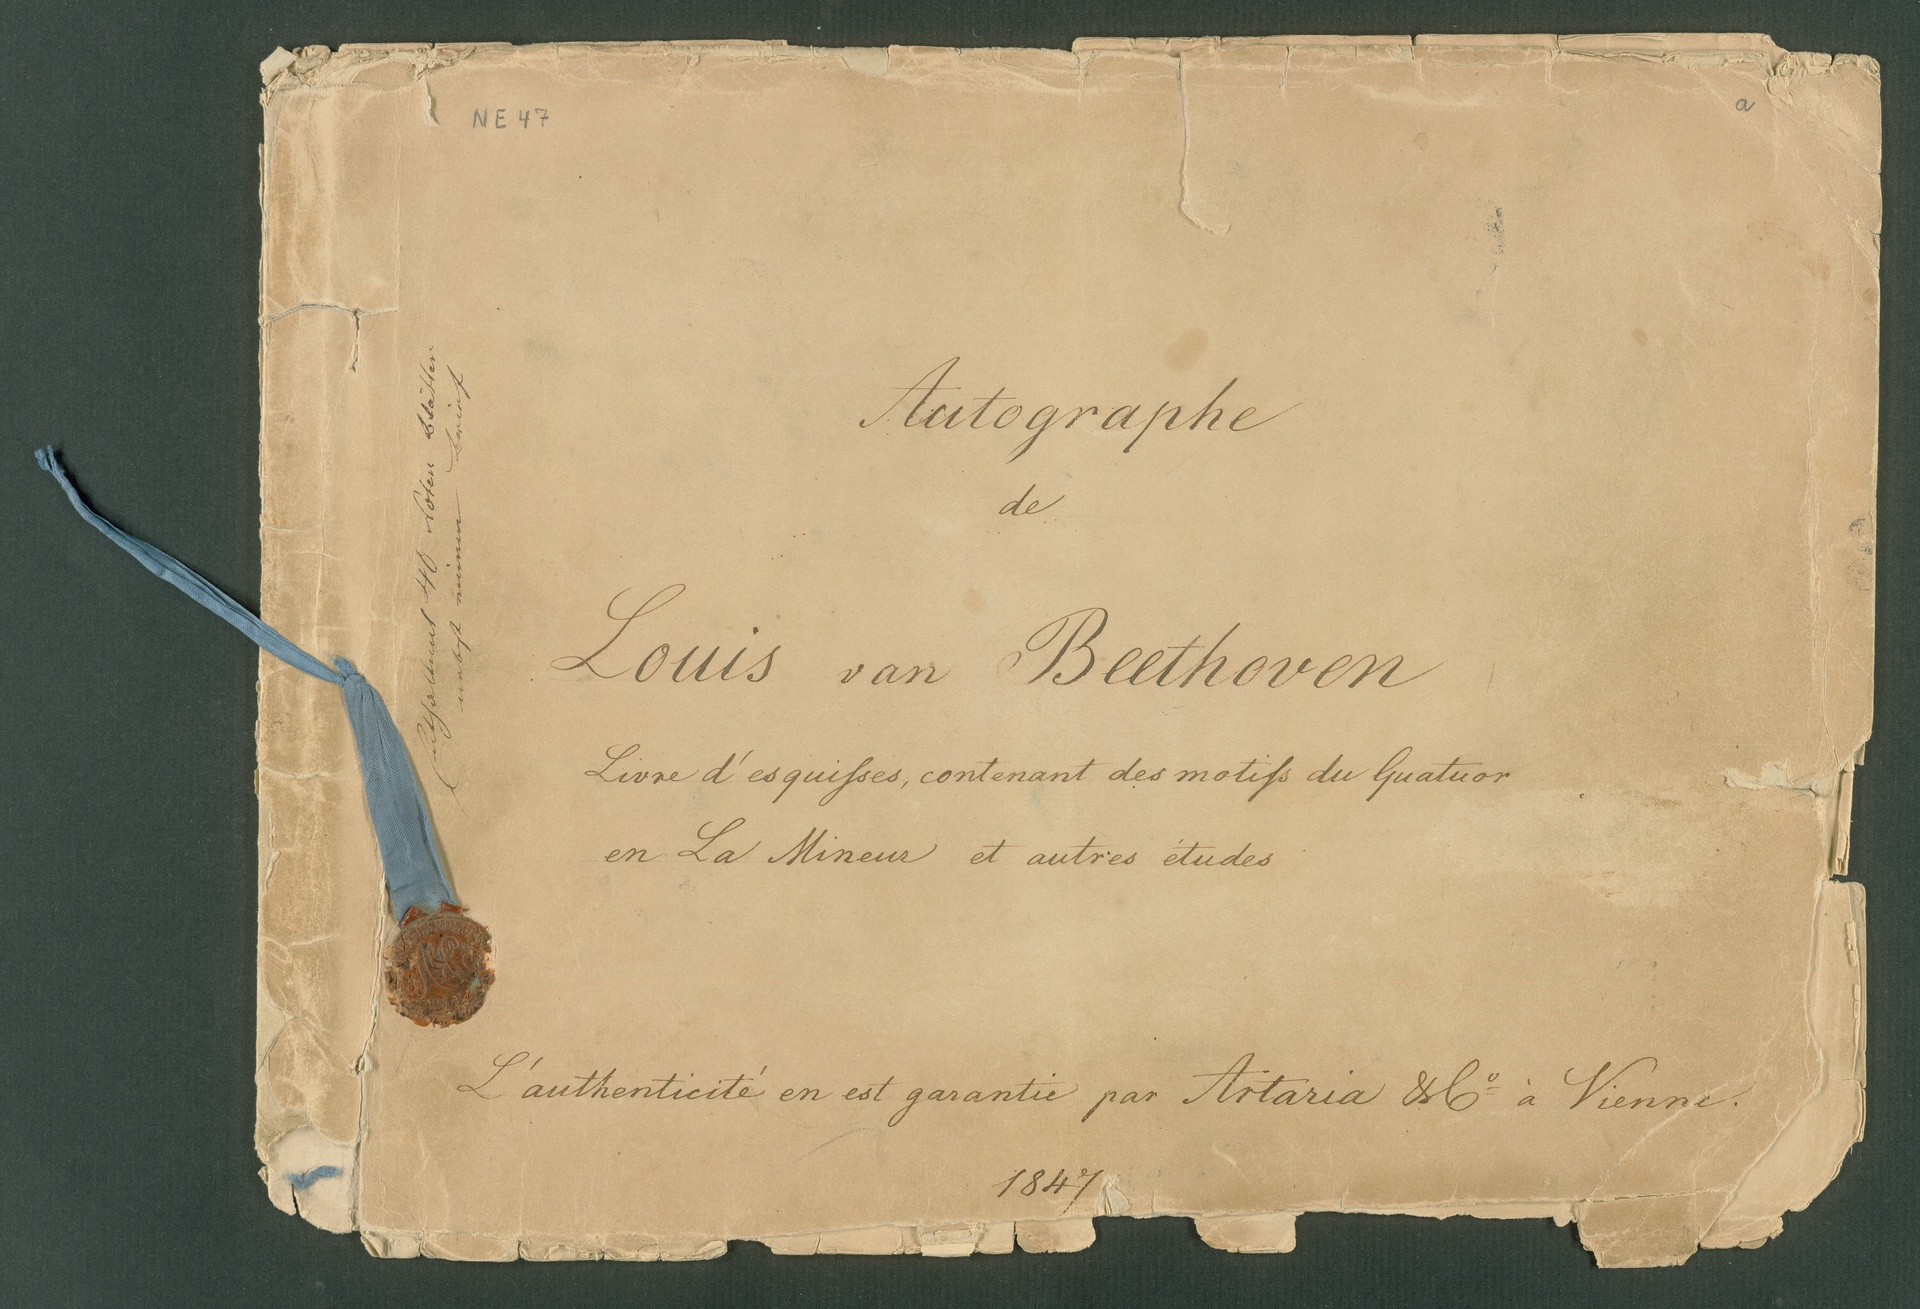 NE 47
a
Autographe
de
Louis van Beethoven
Livre d'esquiſses, contenant des motifs du Quatuor
en La Mineur et autres études
L'authenticité en est garantie par Artaria & Co à Vienne.
1847
40 Noten Blätter
nebst einem